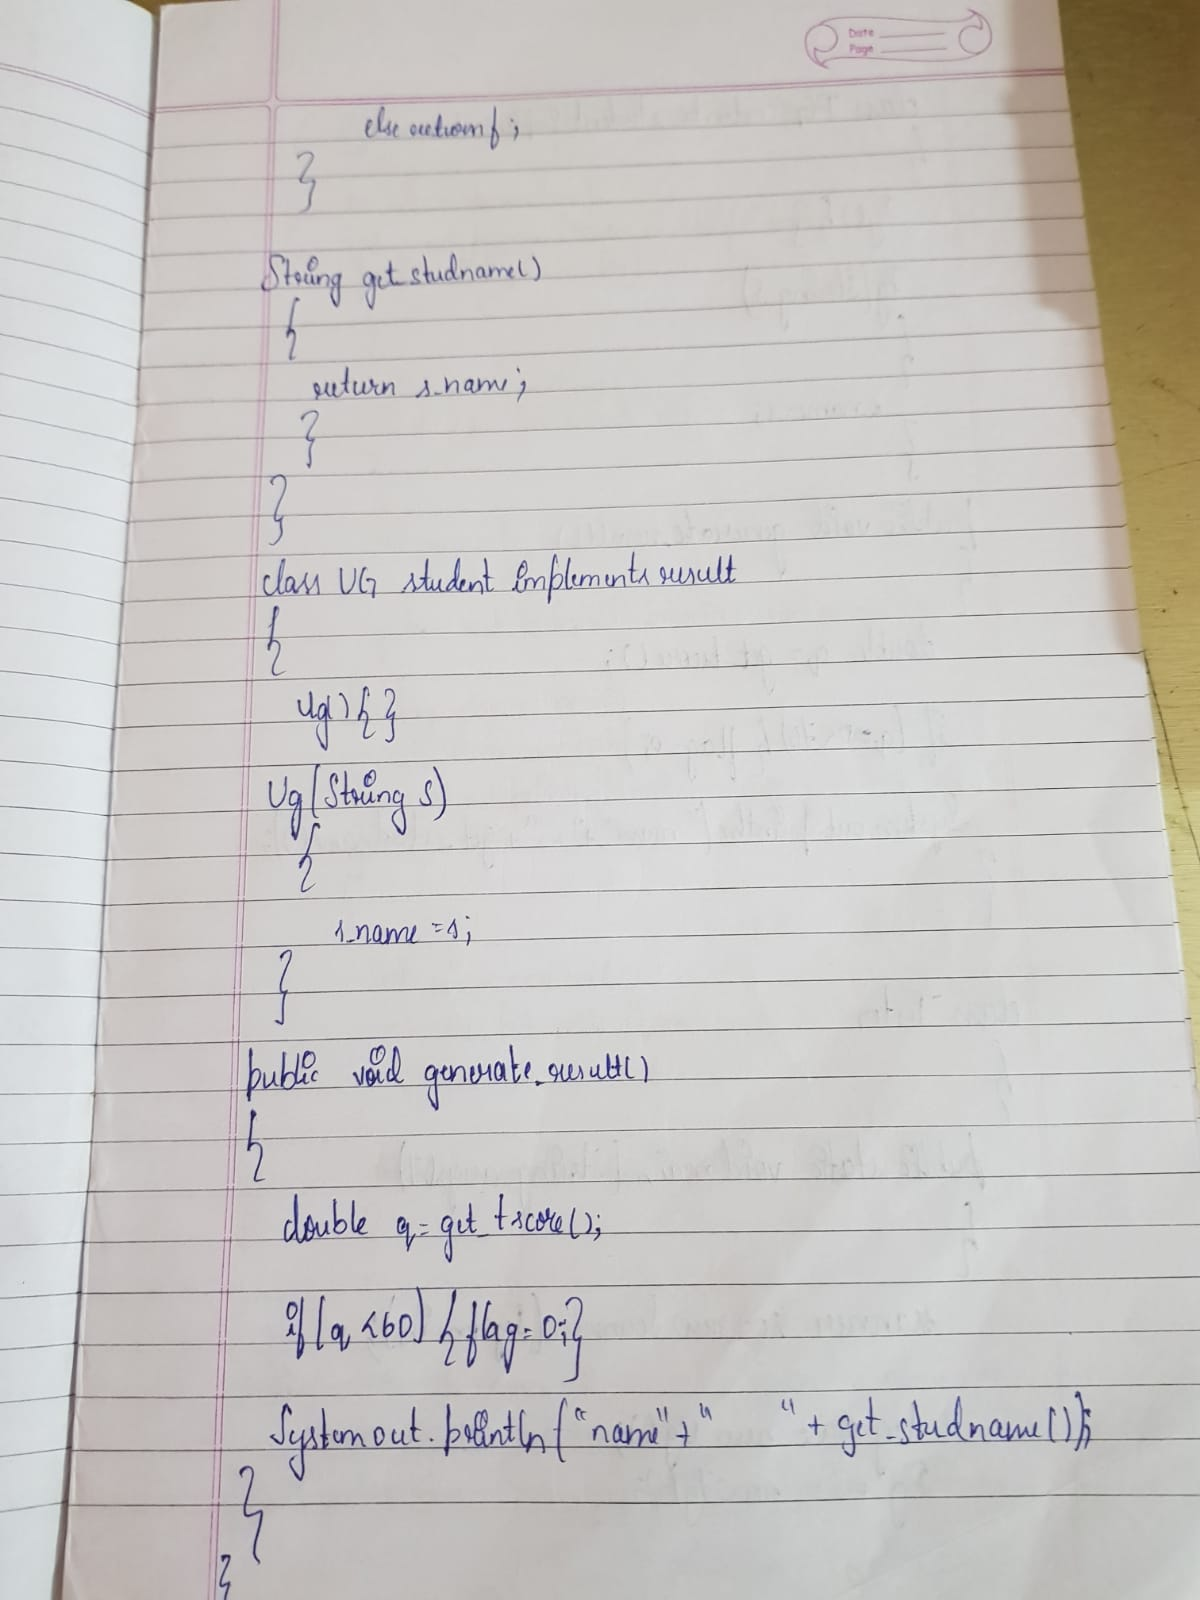 Date
Page
else return f;
}
String get_studname()
{
return s_name;
}
}
class UG student implements result
{
Ug() { }
Ug(String s)
{
s_name = s;
}
public void generate_result()
{
double q = get_tscore();
if (q < 60) { flag = 0; }
System out. println ("name" + "      " + get_studname());
}
}